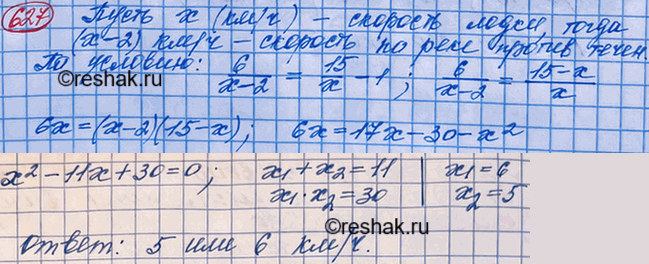 627 Пусть x (км/ч) – скорость лодки, тогда
(x-2) км/ч – скорость по реке против течен.
По условию: 6/(x-2) = 15/x - 1; 6/(x-2) = (15-x)/x
6x=(x-2)(15-x); 6x=17x-30-x²
x²-11x+30=0; x₁+x₂=11 | x₁=6
x₁·x₂=30 | x₂=5
Ответ: 5 или 6 км/ч.
©reshak.ru